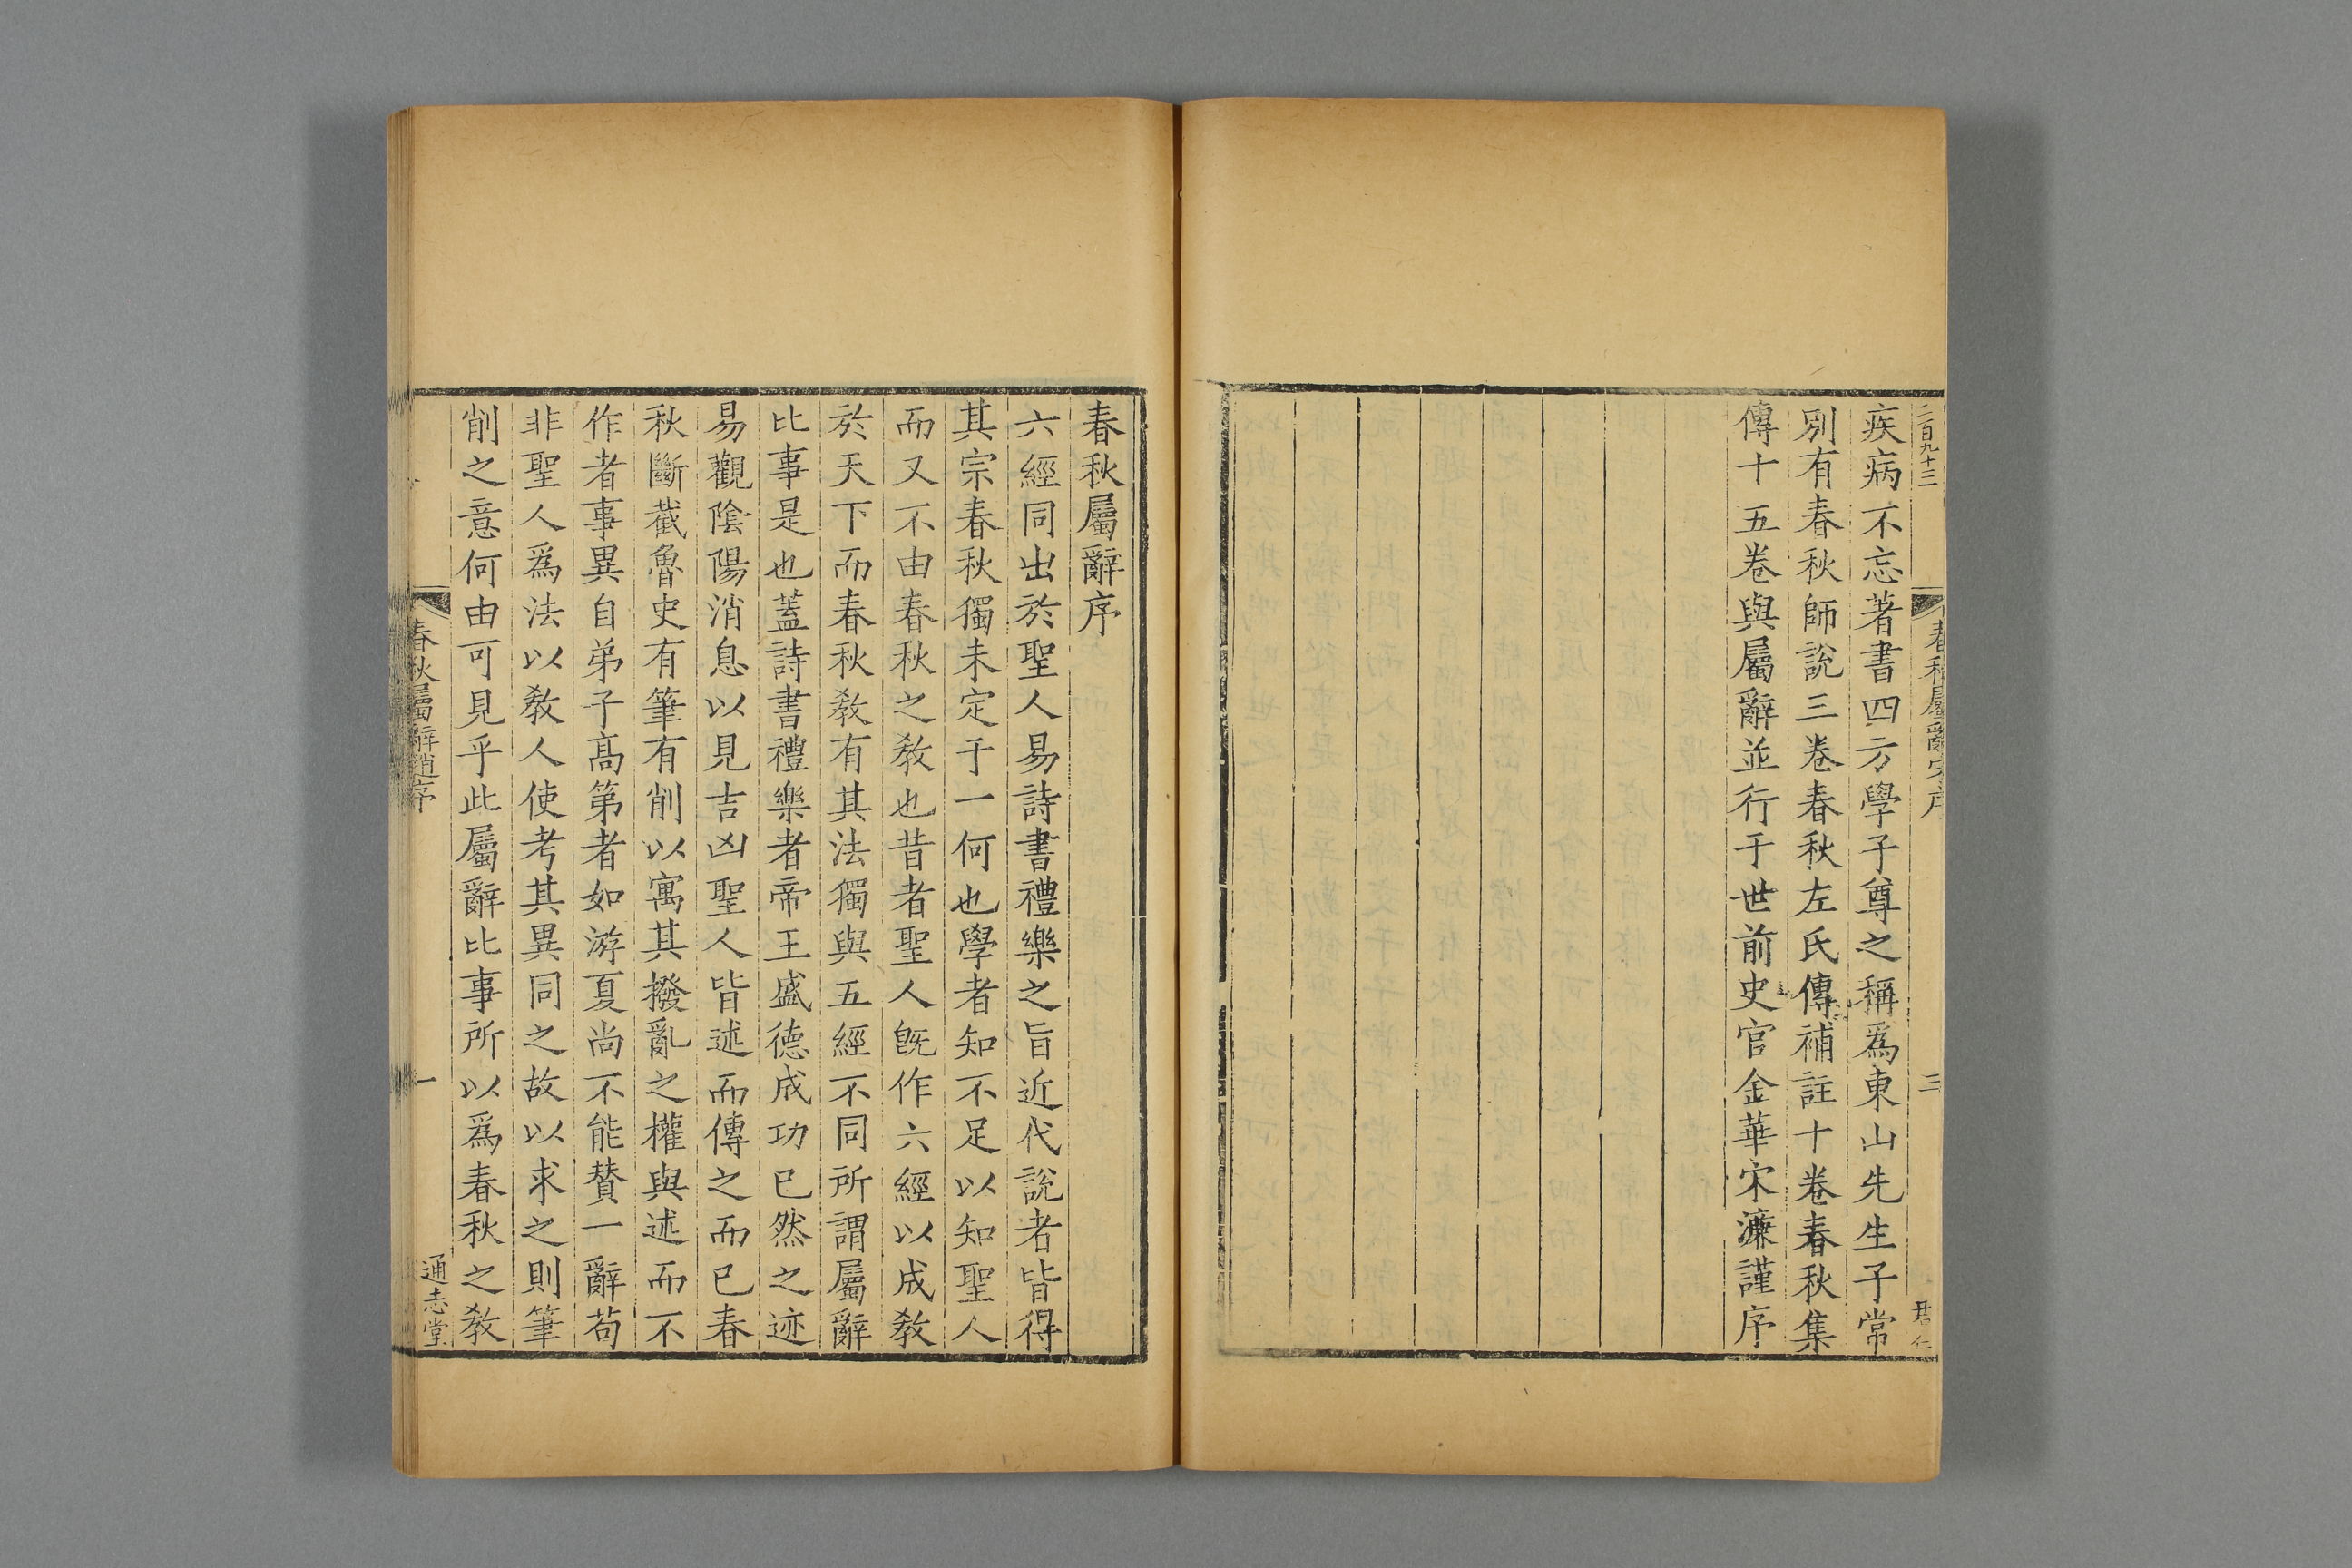 二百九十三
春秋屬辭宋序
三
君仁
疾病不忘著書四方學子尊之稱爲東山先生子常
別有春秋師說三卷春秋左氏傳補註十卷春秋集
傳十五卷與屬辭並行于世前史官金華宋濂謹序
春秋屬辭序
六經同出於聖人易詩書禮樂之旨近代說者皆得
其宗春秋獨未定于一何也學者知不足以知聖人
而又不由春秋之敎也昔者聖人旣作六經以成敎
於天下而春秋敎有其法獨與五經不同所謂屬辭
比事是也蓋詩書禮樂者帝王盛德成功已然之迹
易觀陰陽消息以見吉凶聖人皆述而傳之而已春
秋斷截魯史有筆有削以寓其撥亂之權與述而不
作者事異自弟子高第者如游夏尚不能賛一辭苟
非聖人爲法以敎人使考其異同之故以求之則筆
削之意何由可見乎此屬辭比事所以爲春秋之敎
春秋屬辭趙序
一
通志堂